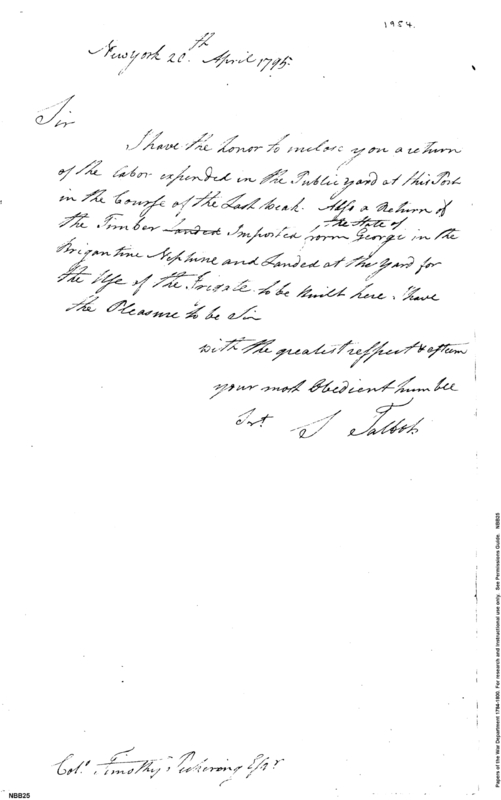 1954.
New york 20th April 1795.
Sir
I have the honor to inclose you a return
of the labor expended in the Public Yard at this Port
in the Course of the Last Weak. Also a Return of
the State of
the Timber Landed Imported from George in the
Brigantine Neptune and Landed at the Yard for
the Use of the Frigate to be built here. I have
the Pleasure to be Sir
with the greatest respect & esteem
your most Obedient humble
Srt. S Talbot
Colo. Timothy Pickering Esqr
NBB25
Papers of the War Department 1784-1800. For research and instructional use only. See Permissions Guide. NBB25